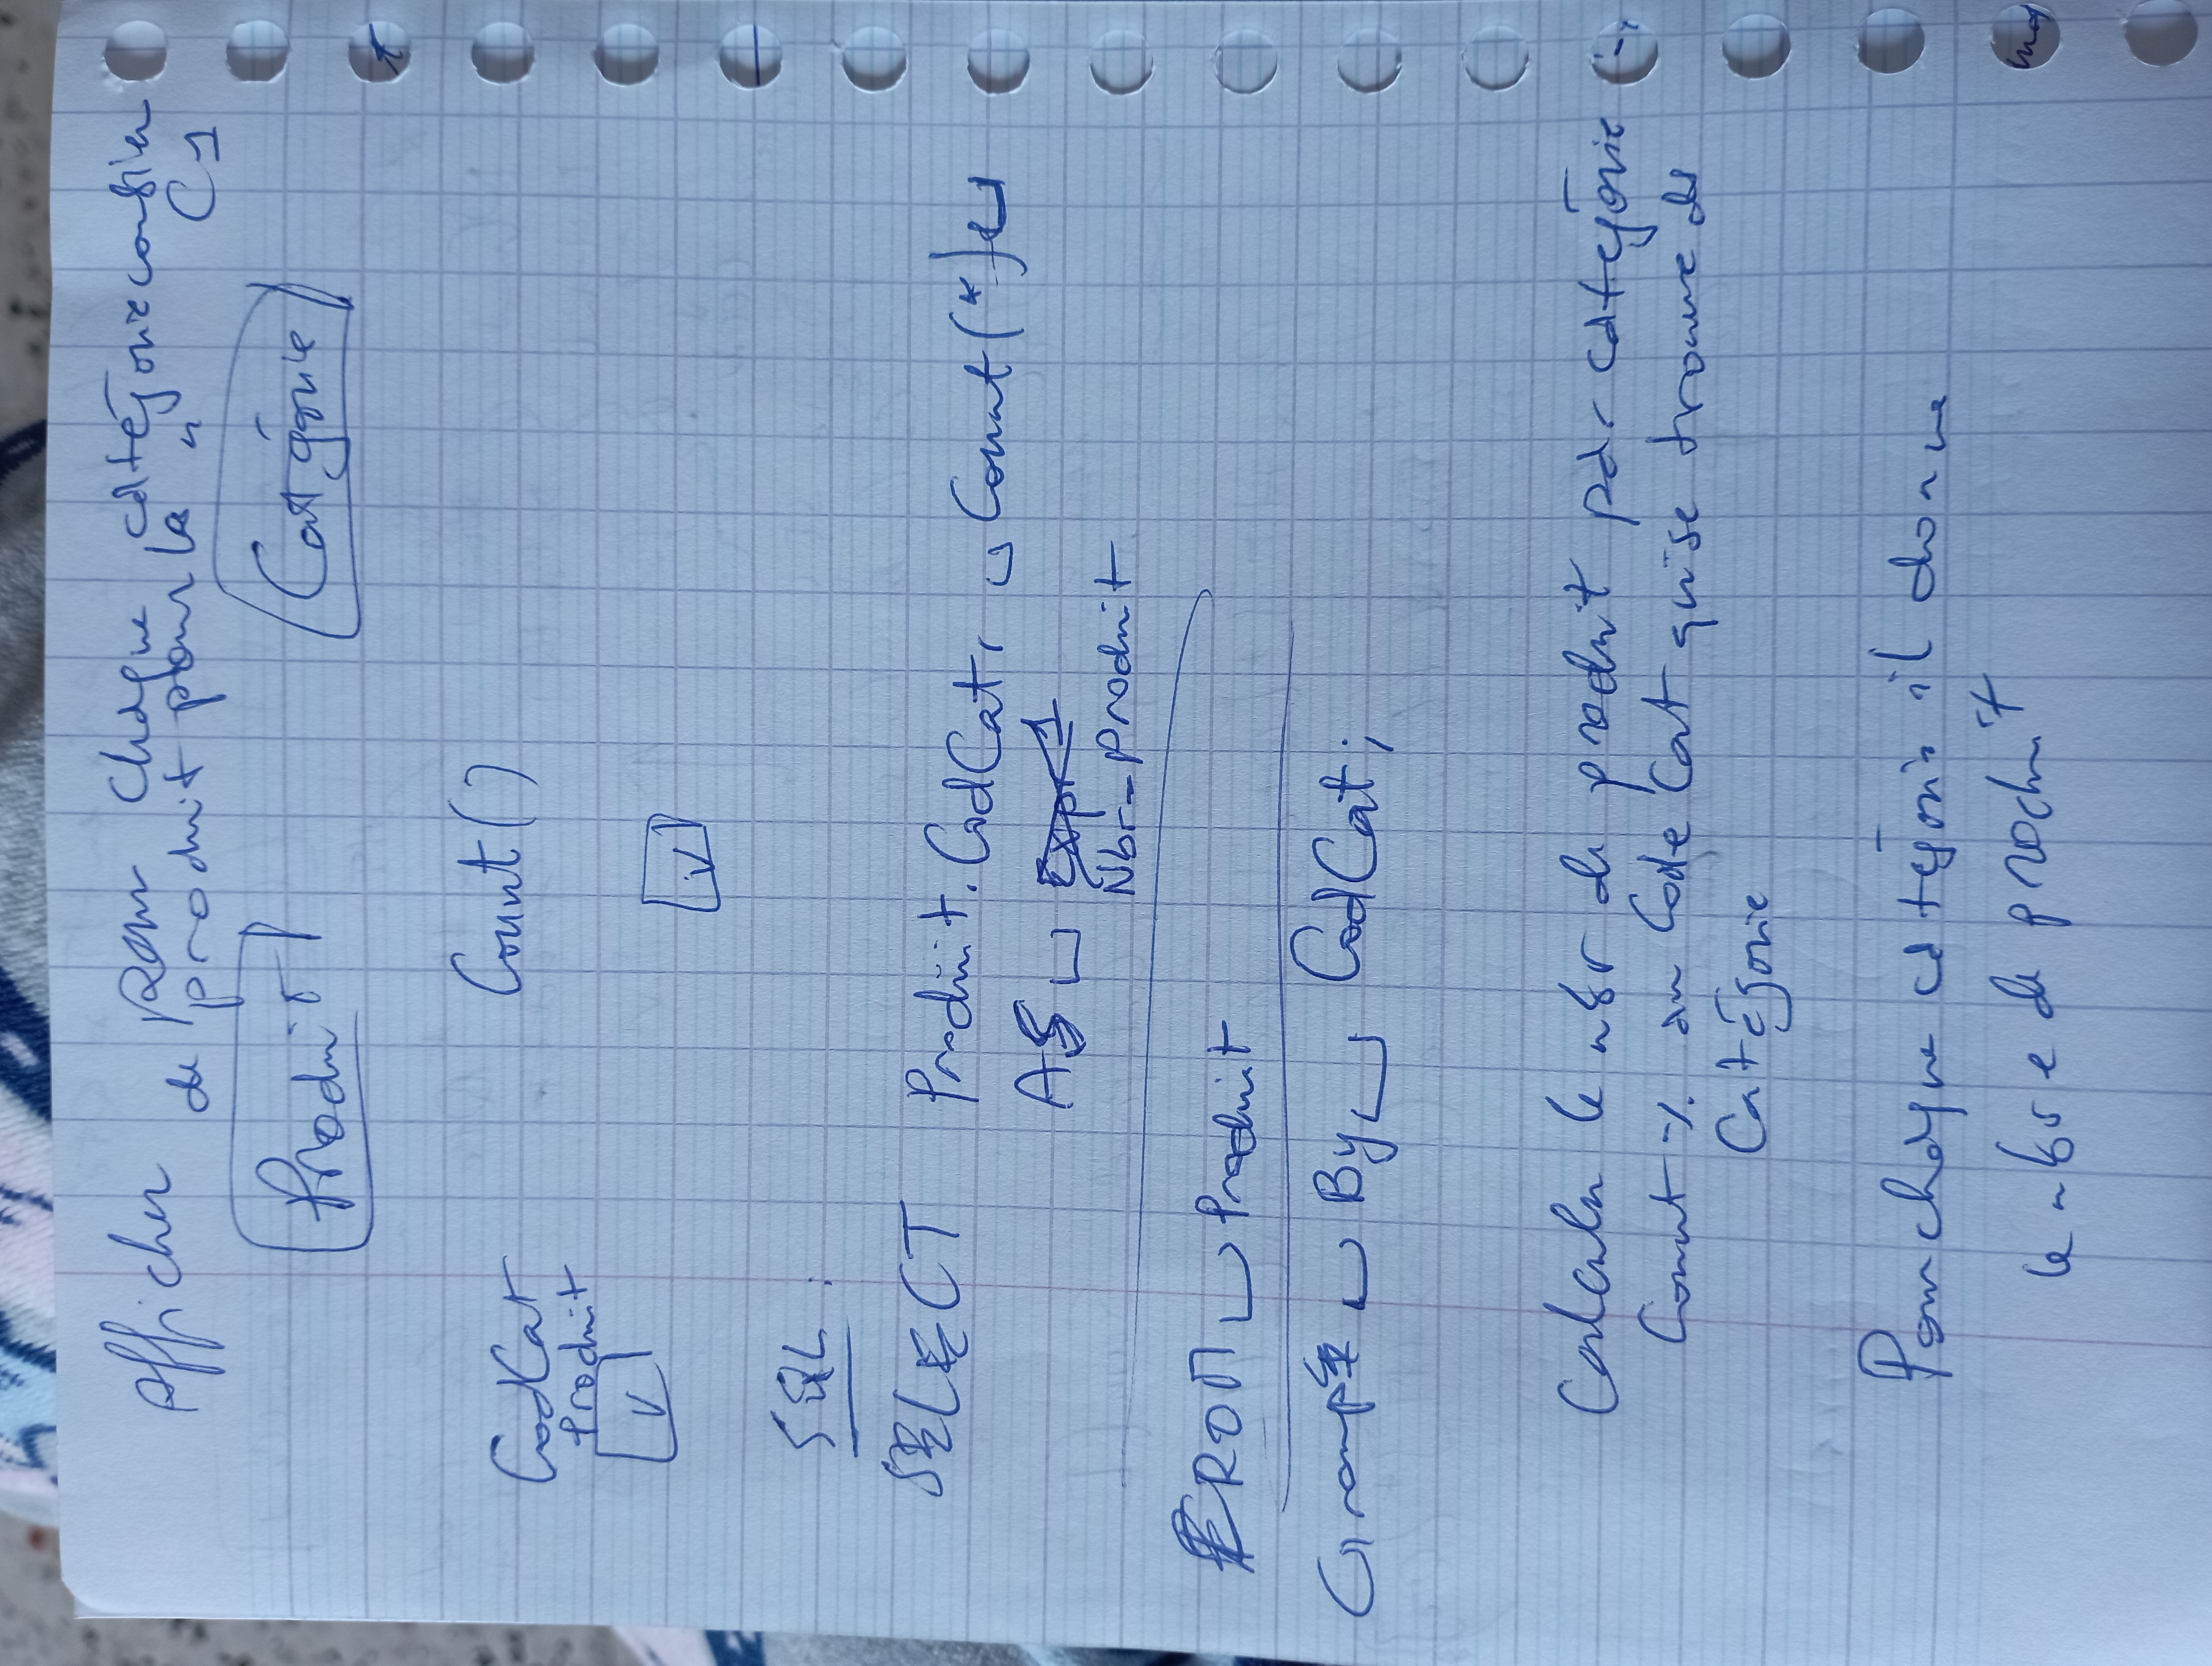 Afficher Pour chaque catégorie combien
de produit pour la " C1
Produit Catégorie
CodCat Count()
Produit
SQL :
SELECT Produit.CodCat, Count(*)
AS Nbr_Produit
FROM Produit
Group By CodCat;
Calculer le nbr de produit par catégorie
Count % au Code Cat qui se trouve ds
Catégorie
Pour chaque catégorie il donne
le nbre de produit